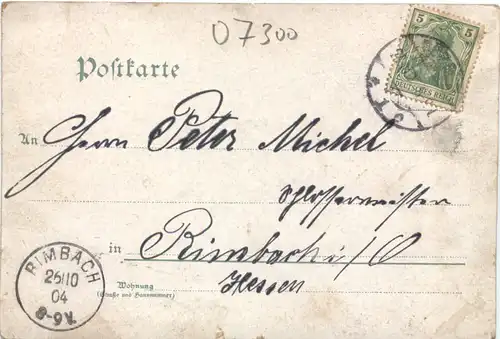 07300
5 5
DEUTSCHES REICH
Postkarte
An Herrn Peter Michel
Schlossermeister
in Rimbach i/O
Hessen
Wohnung
(Straße und Hausnummer)
RIMBACH
26|10
04
8-9V.